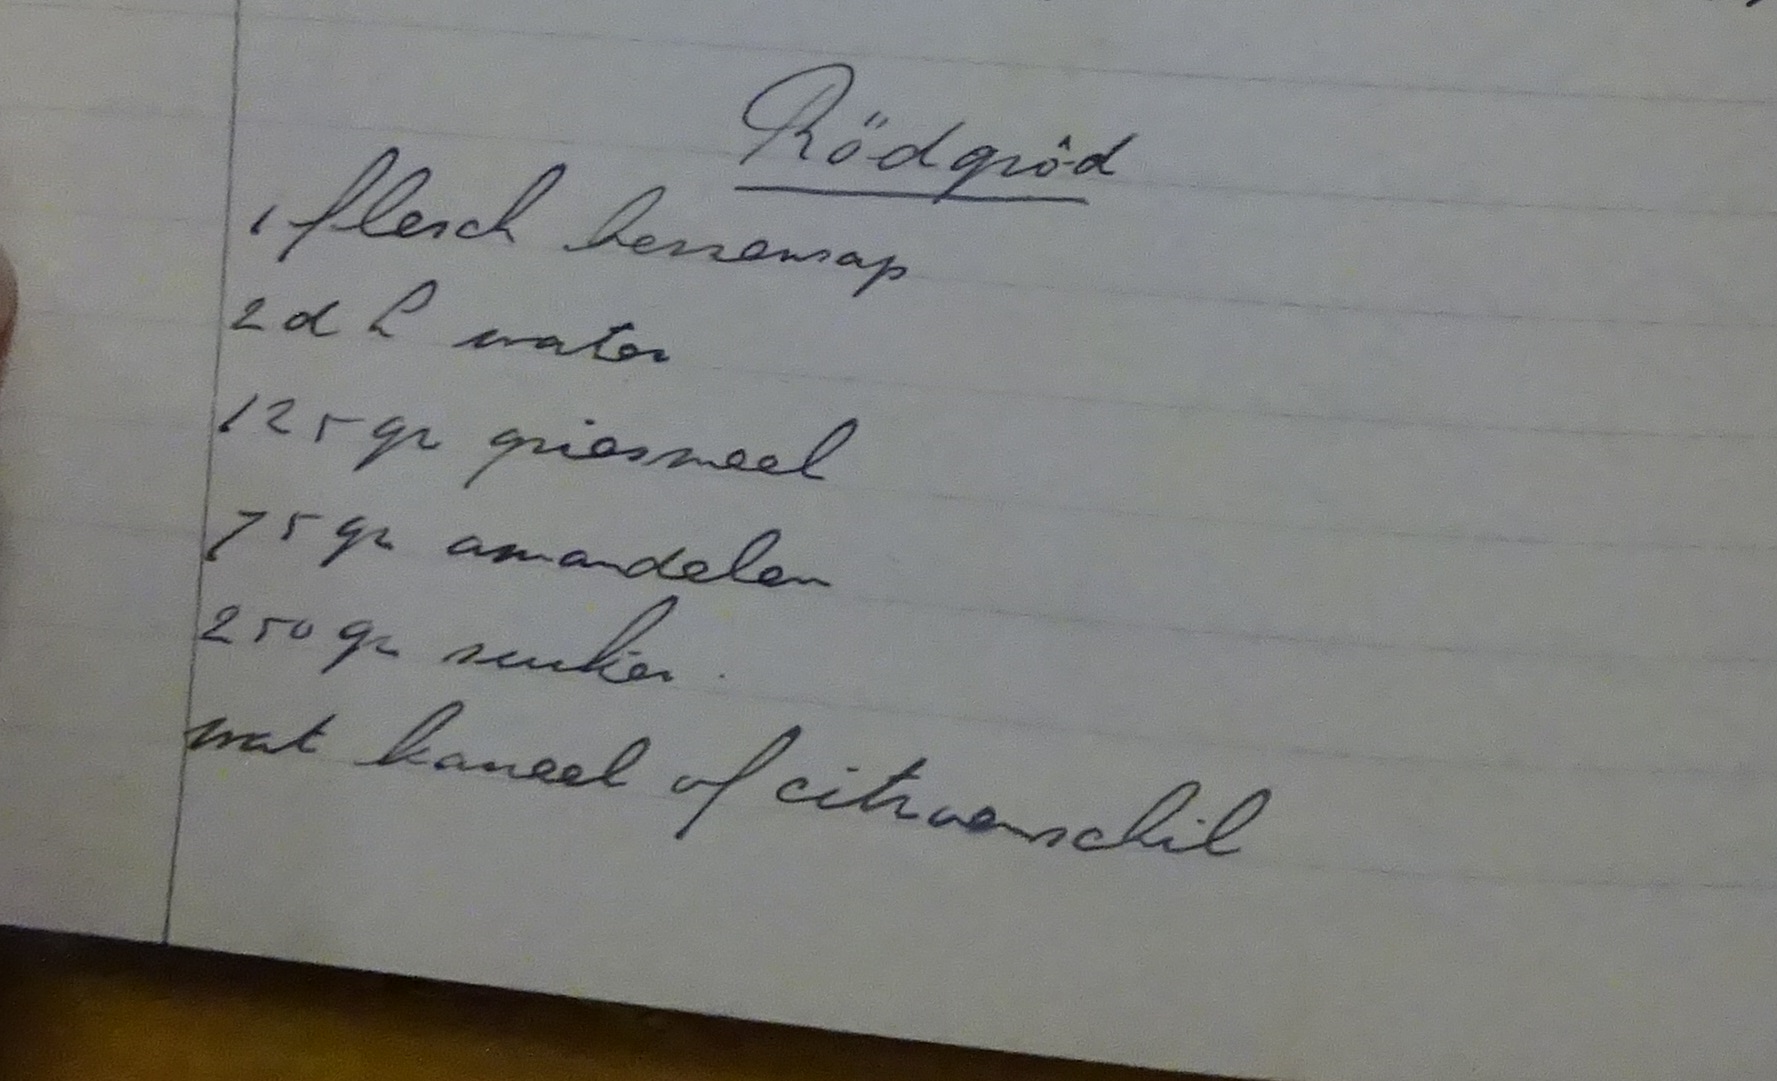 Rödgröd
1 flesch bessensap
2 d L water
125 gr griesmeel
75 gr amandelen
250 gr suiker.
wat kaneel of citroenschil